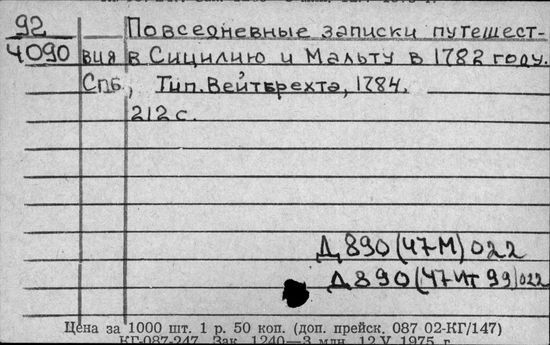 92
4090
Повседневные записки путешест-
вия в Сицилию и Мальту в 1782 году.
Спб, Тип. Вейтбрехта, 1784.
212 с.
Д 890(47М)022
Д 890(47Ит 99)022
Цена за 1000 шт. 1 р. 50 коп. (доп. прейск. 087 02-КГ/147)
КГ-087-247. Зак. 1240—3 млн. 12.V.1975 г.